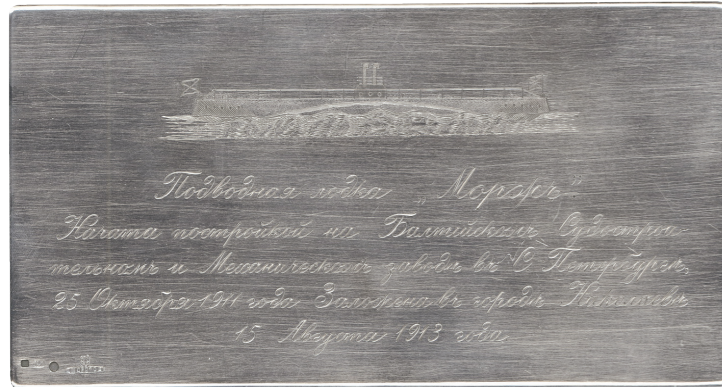 Подводная лодка „Моржъ"
Начата постройкой на Балтійскомъ Судострои-
тельномъ и Механическомъ заводѣ въ С Петербургѣ,
25 Октября 1911 года Заложена въ городѣ Николаевѣ
15 Августа 1913 года